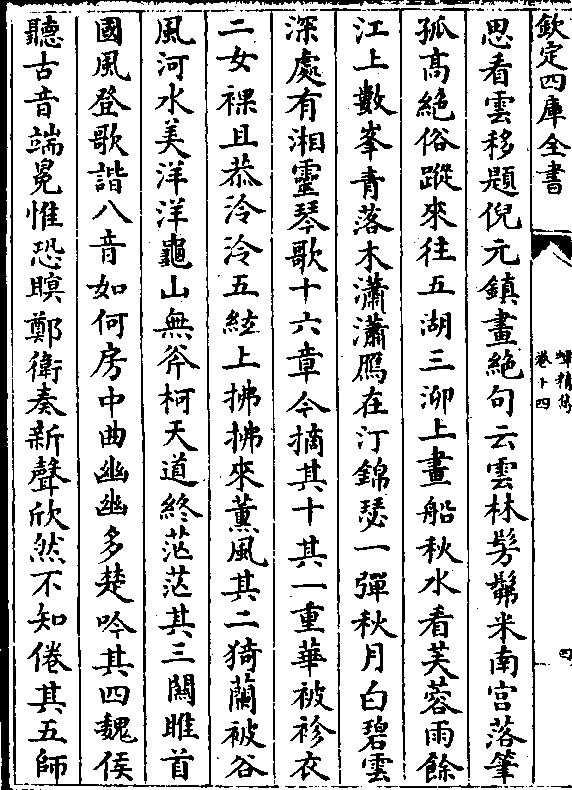 欽定四庫全書
卷十四
四
思看雲移題倪元鎮畫絶句云雲林髣髴米南宫落筆
孤高絶俗蹤來往五湖三泖上畫船秋水看芙蓉雨餘
江上數峯青落木瀟瀟鴈在汀錦瑟一彈秋月白碧雲
深處有湘靈琴歌十六章今摘其十其一重華被袗衣
二女裸且恭泠泠五絃上拂拂來薫風其二猗蘭被谷
風河水美洋洋龜山無斧柯天道終茫茫其三關雎首
國風登歌諧八音如何房中曲幽幽多楚吟其四魏侯
聽古音端冕惟恐瞑鄭衛奏新聲欣然不知倦其五師